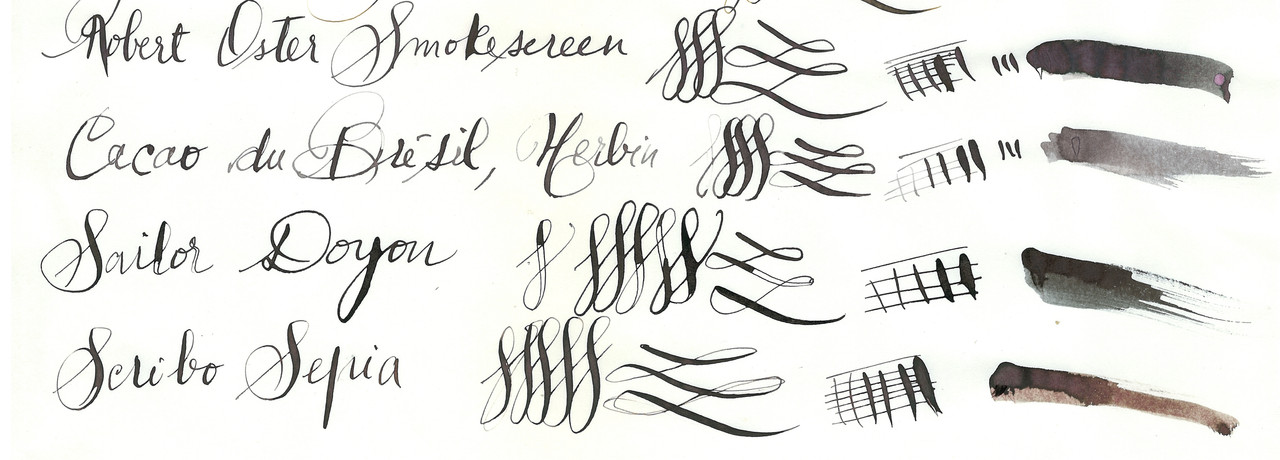 Robert Oster Smokescreen
Cacao du Brésil, Herbin
Sailor Doyou
Scribo Sepia